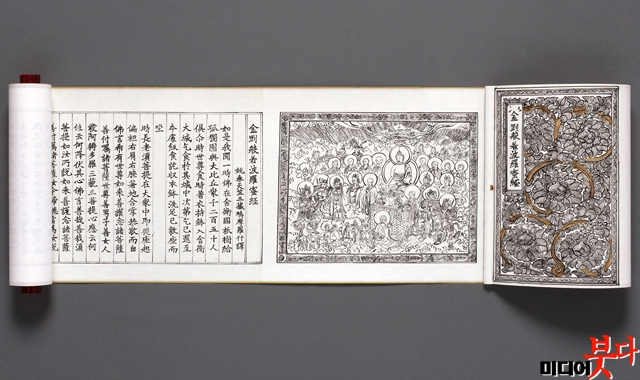 金剛般若波羅蜜經
金剛般若波羅蜜經
姚秦天竺三藏鳩摩羅什譯
如是我聞一時佛在舍衛國祇樹給
孤獨園與大比丘衆千二百五十人
俱爾時世尊食時著衣持鉢入舍衛
大城乞食於其城中次第乞已還至
本處飯食訖收衣鉢洗足已敷座而
坐
時長老須菩提在大衆中即從座起
偏袒右肩右膝著地合掌恭敬而白
佛言希有世尊如來善護念諸菩薩
善付囑諸菩薩世尊善男子善女人
發阿耨多羅三藐三菩提心應云何
住云何降伏其心佛言善哉善哉須
菩提如汝所說如來善護念諸菩薩
善付囑諸菩薩汝今諦聽當爲汝說
미디어붓다